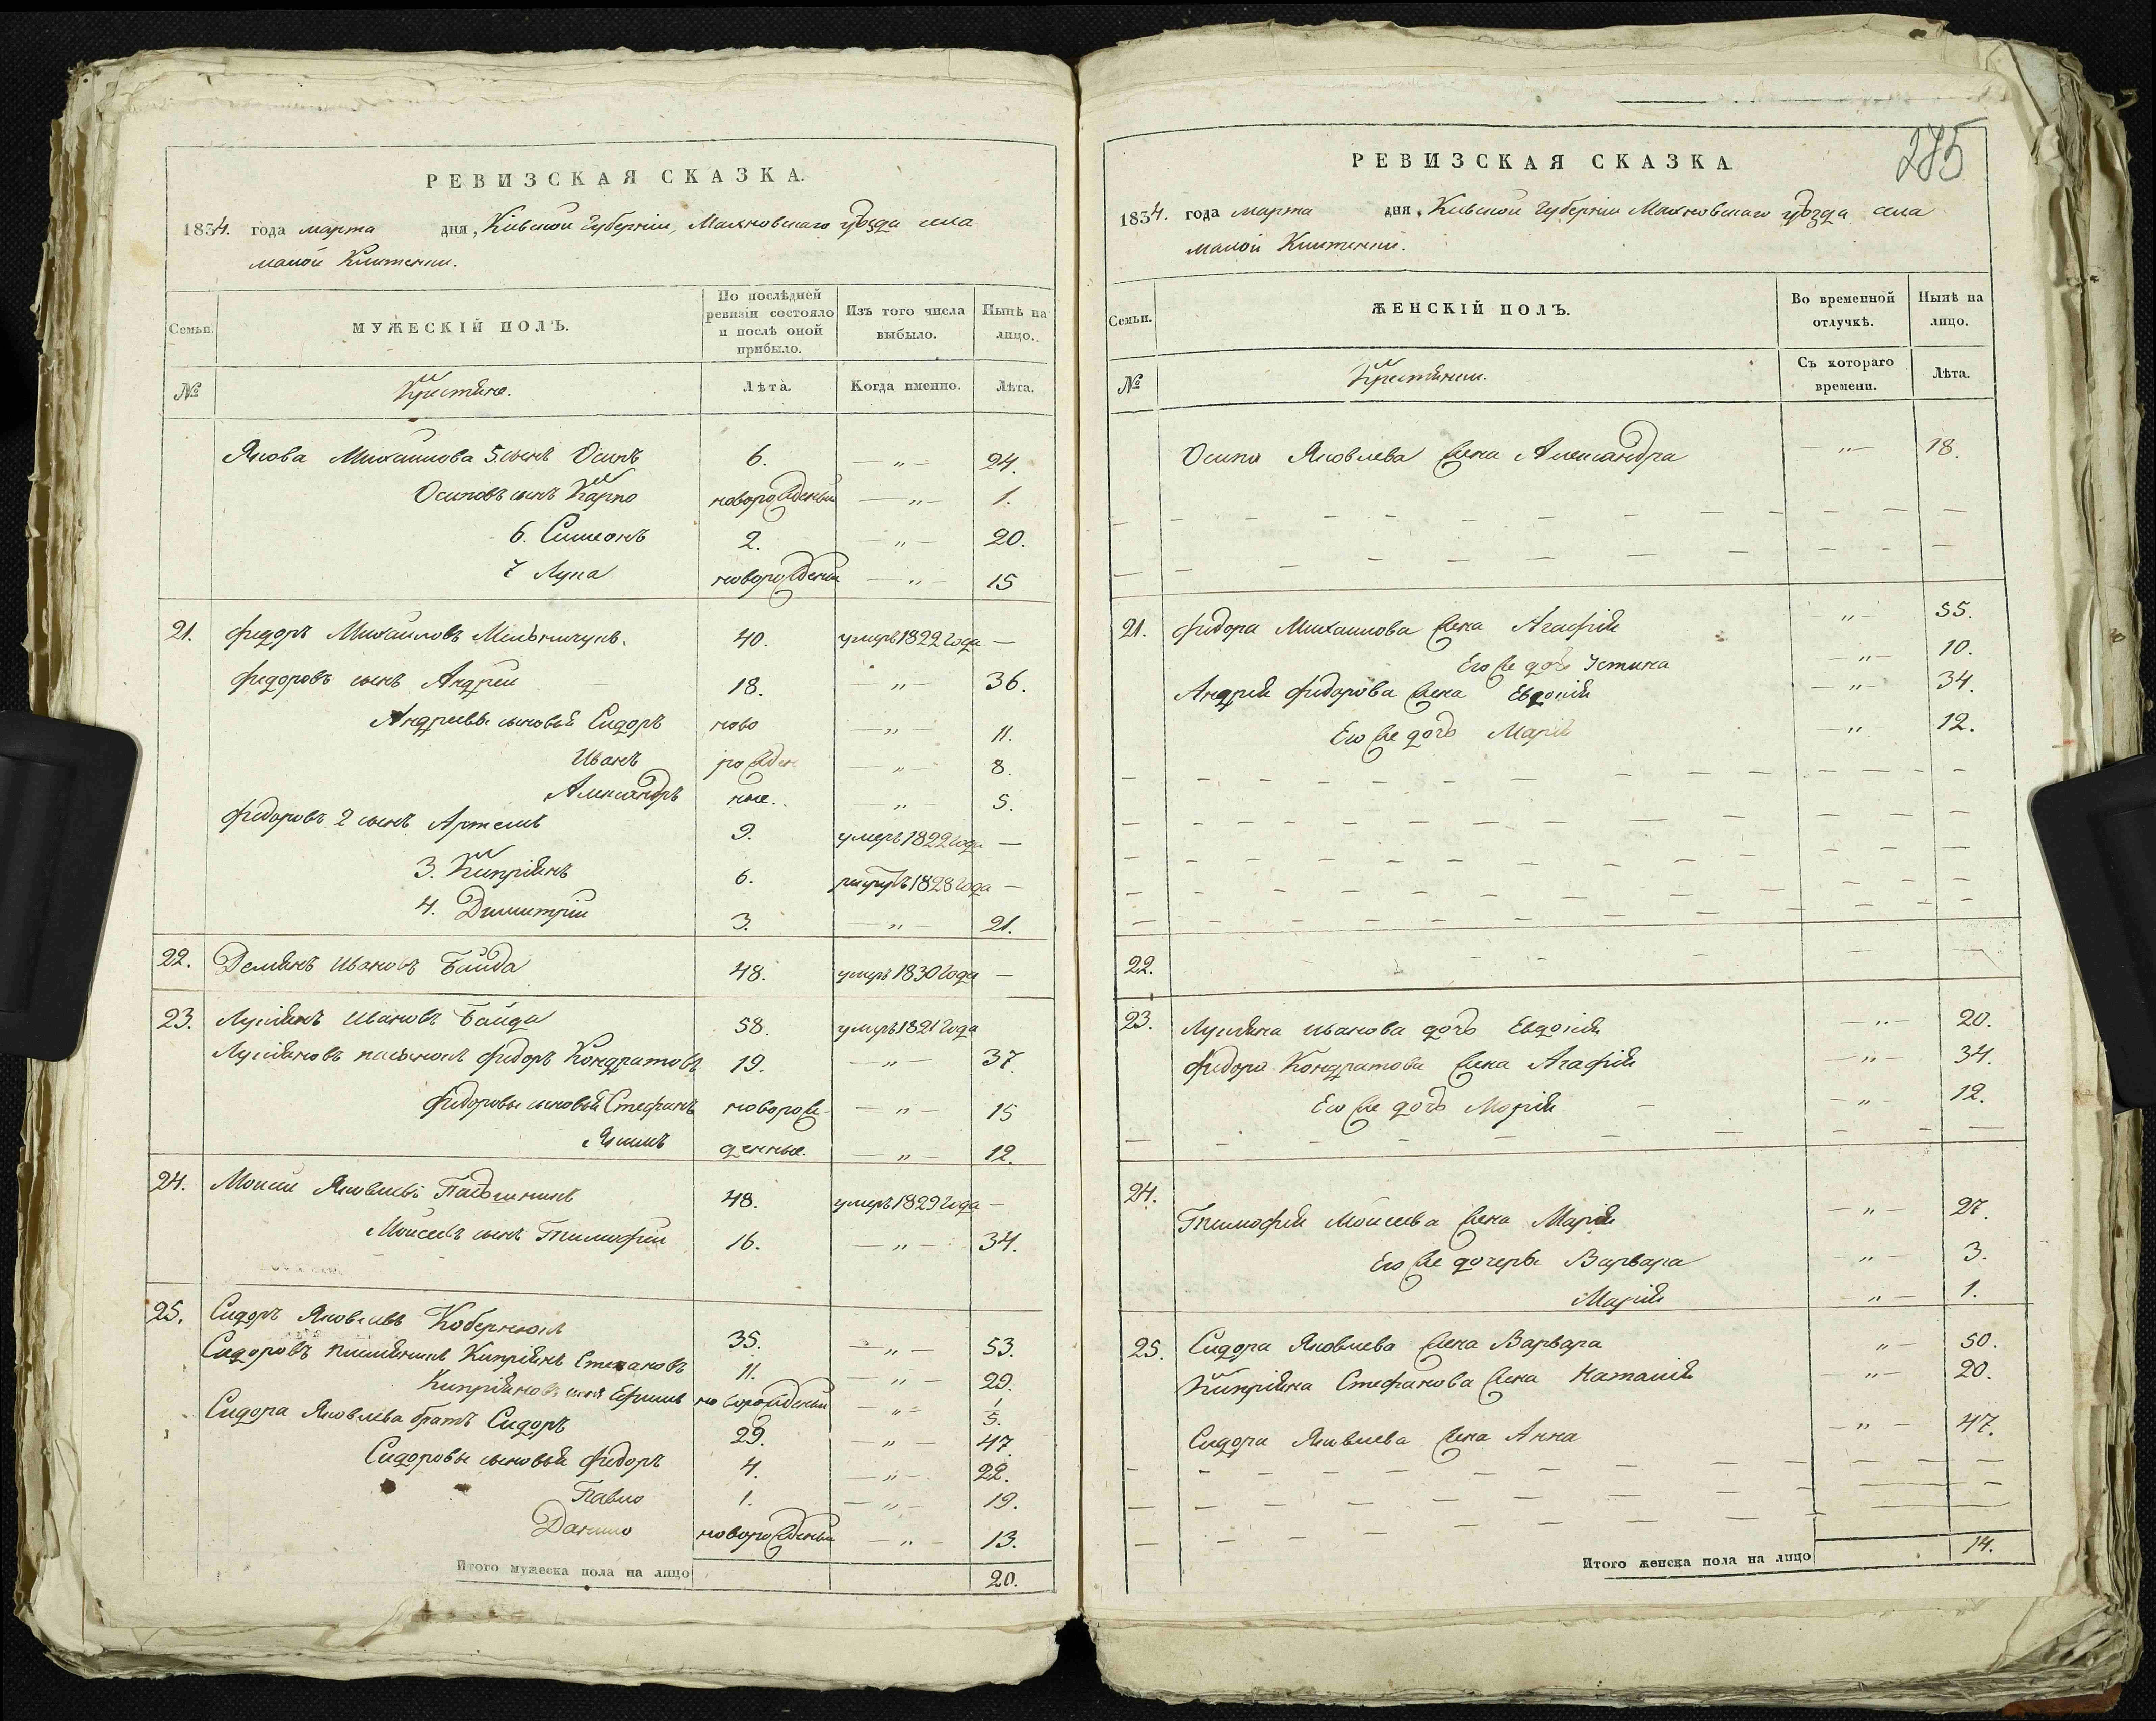 РЕВИЗСКАЯ СКАЗКА.
1834. года марта дня, Кіевской Губерніи, Махновскаго уѣзда села
малой Клитенки.
Семьи.
МУЖЕСКІЙ ПОЛЪ.
По послѣдней ревизіи состояло и послѣ оной прибыло.
Изъ того числа выбыло.
Нынѣ на лицо.
№
Крестьяне.
Лѣта.
Когда именно.
Лѣта.
Якова Михайлова 5. сынъ Осипъ 6. — „ — 24.
Осиповъ сынъ Карпо новорожденный — „ — 1.
6. Симеонъ 2. — „ — 20.
7 Лука новорожденый — „ — 15
21. Федоръ Михайловъ Мельничукъ. 40. умеръ 1822 года —
Федоровъ сынъ Андрей 18. „ — 36.
Андреевы сыновья Сидоръ ново — „ — 11.
Иванъ рожден — „ — 8.
Александръ ные. — „ — 5.
Федоровъ 2 сынъ Артемъ 9. умеръ 1822 года —
3. Кипріянъ 6. рекрутъ 1828 года —
4. Димитрій 3. — „ — 21.
22. Демянъ Ивановъ Байда 48. умеръ 1830 года —
23. Лукіянъ Ивановъ Байда 58. умеръ 1821 года
Лукіяновъ пасынокъ Федоръ Кондратовъ 19. — „ — 37.
Федоровы сыновья Стефанъ новорож- — „ — 15
Якимъ денные. — „ — 12.
24. Моисей Яковлевъ 48. умеръ 1829 года —
Моисеевъ сынъ Тимофей 16. — „ — 34.
25. Сидоръ Яковлевъ Кобернюкъ 35. — „ — 53.
Сидоровъ племянникъ Кипріянъ Степановъ 11. — „ — 29.
Кипріяновъ сынъ Ефимъ новорожденый — „ — 1/5.
Сидора Яковлева братъ Сидоръ 29. „ — 47.
Сидоровы сыновья Федоръ 4. — „ — 22.
Павло 1. — „ — 19.
Данило новорожденый — „ — 13.
Итого мужеска пола на лицо 20.
285
РЕВИЗСКАЯ СКАЗКА
1834. года марта дня, Кіевской Губерніи Махновскаго уѣзда села
малой Клитенки.
Семьи.
ЖЕНСКІЙ ПОЛЪ.
Во временной отлучкѣ.
Нынѣ на лицо.
№
Крестьянки.
Съ котораго времени.
Лѣта.
Осипа Яковлева жена Александра — „ — 18.
21. Федора Михайлова жена Агафія „ — 55.
Его же дочь Устина — „ — 10.
Андрея Федорова жена Евдокія — „ — 34.
Его же дочь Марія — „ 12.
22.
23. Лукіяна Иванова дочь Евдокія — „ — 20.
Федора Кондратова жена Агафія — „ — 34.
Его же дочь Марія — „ — 12.
24.
Тимофея Моисеева жена Марія — „ — 27.
Его же дочери Варвара „ — 3.
Марія „ — 1.
25. Сидора Яковлева жена Варвара „ — 50.
Кипріяна Стефанова жена Наталія — „ — 20.
Сидора Яковлева жена Анна — „ — 47.
Итого женска пола на лицо 14.